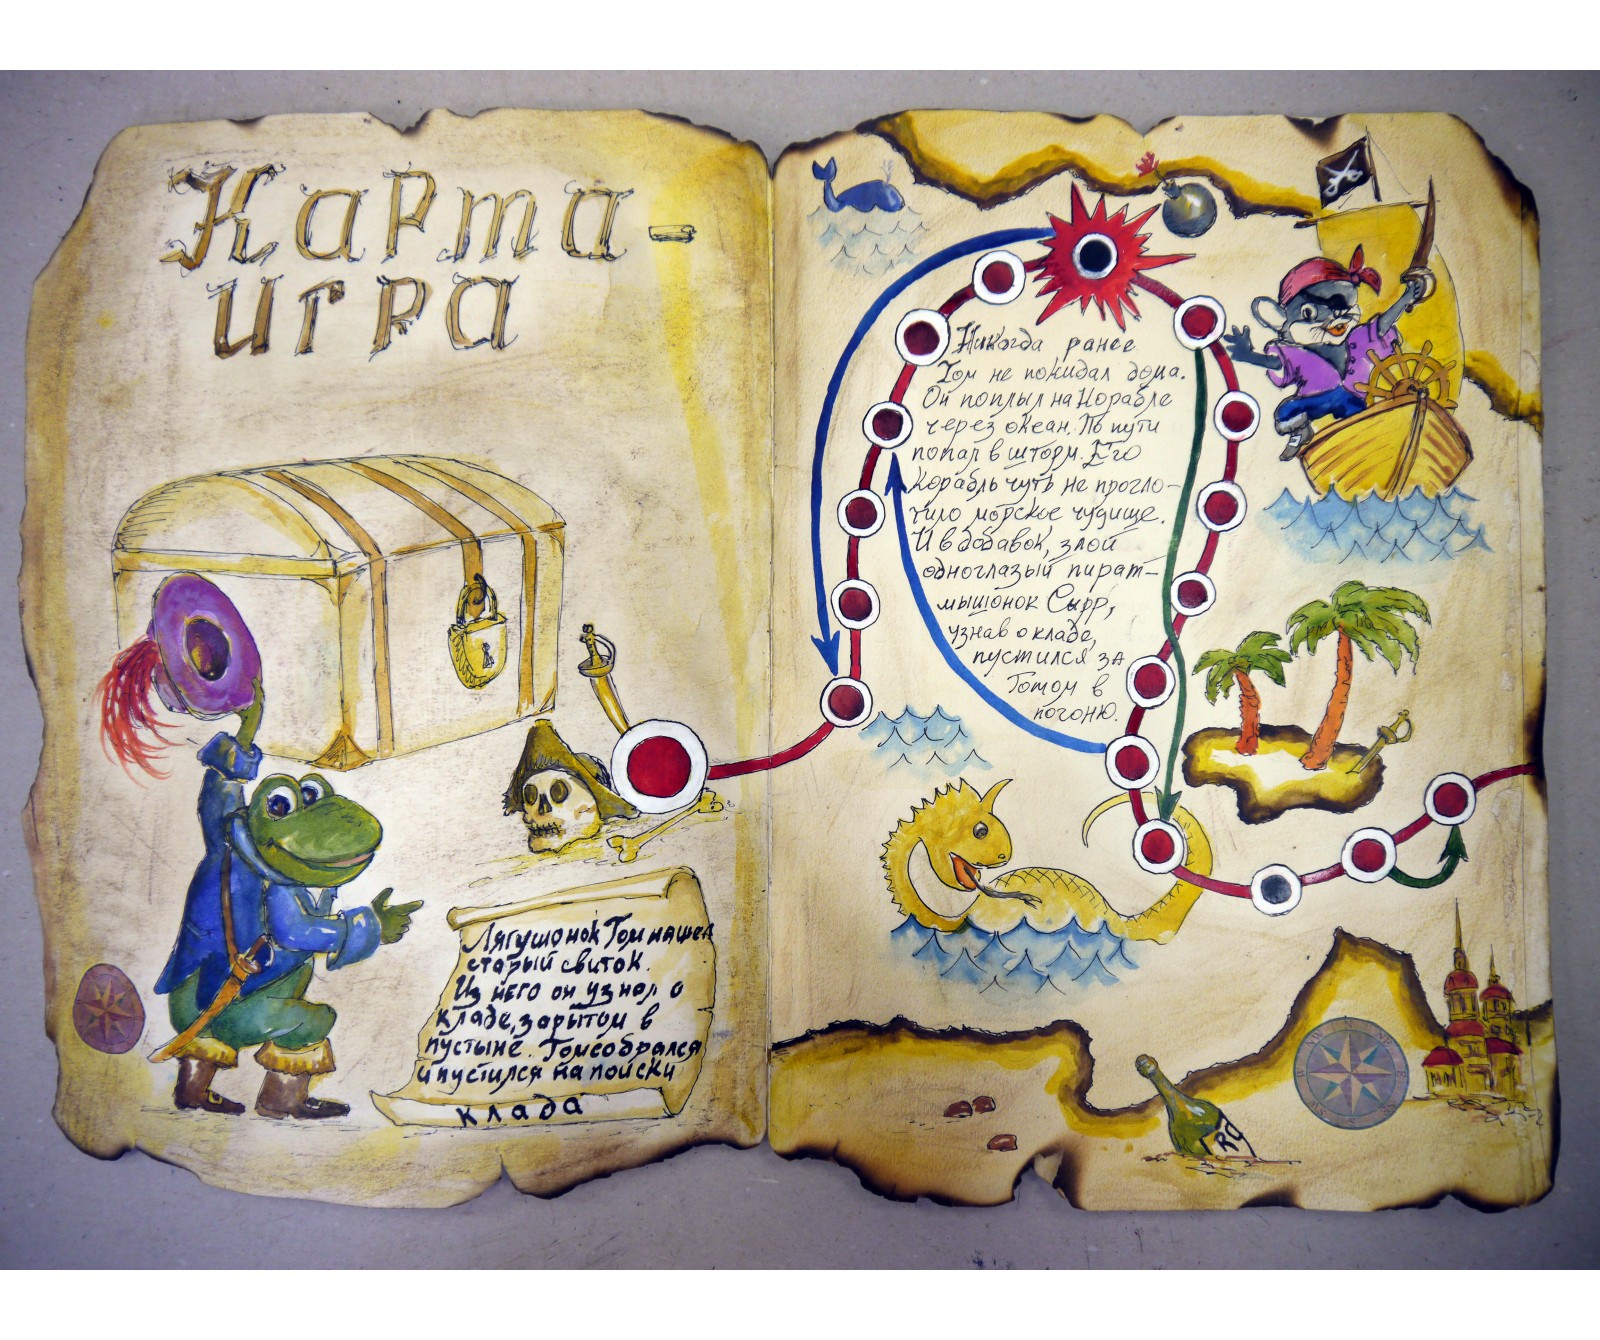 Карта-
игра
Лягушонок Том нашел
старый свиток.
Из него он узнал о
кладе, зарытом в
пустыне. Том собрался
и пустился на поиски
клада
Никогда ранее
Том не покидал дома.
Он поплыл на корабле
через океан. По пути
попал в шторм. Его
корабль чуть не прогло-
тило морское чудище.
И в добавок, злой
одноглазый пират-
мышонок Сырр,
узнав о кладе,
пустился за
Томом в
погоню.